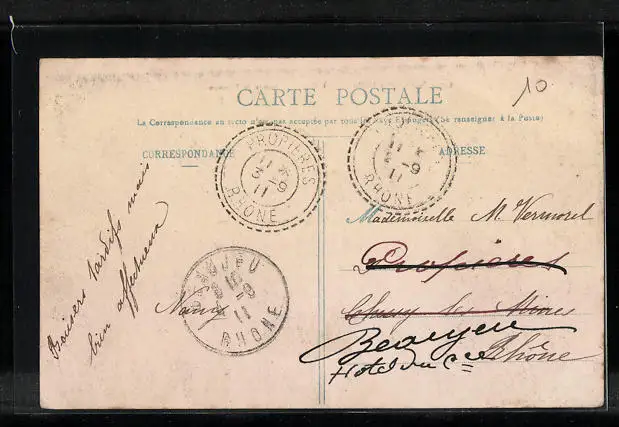 10
CARTE POSTALE
La Correspondance au recto n'est pas acceptée par tous les Pays Etrangers (Se renseigner à la Poste)
CORRESPONDANCE
ADRESSE
PROPIERES
11
9
11
RHONE
11
9
11
RHONE
Baisers tardifs mais
bien affectueux
Nancy
BEAUJEU
9
11
RHONE
Mademoiselle M. Vermorel
Propières
Chessy les Mines
Beaujeu
Rhône
Hotel du Cce